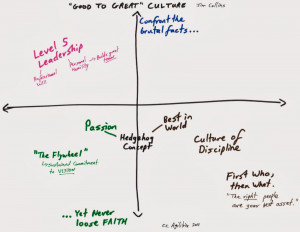 "GOOD TO GREAT" CULTURE Jim Collins
Confront the
brutal facts...
Level 5
Leadership
Professional
Will
Personal
Humility
Builds good
Passion
Best in
World
Hedgehog
Concept
Culture of
Discipline
"The Flywheel"
Sustained Commitment
to VISION
First Who,
then What.
"The right people
are your best asset."
...Yet Never
loose FAITH